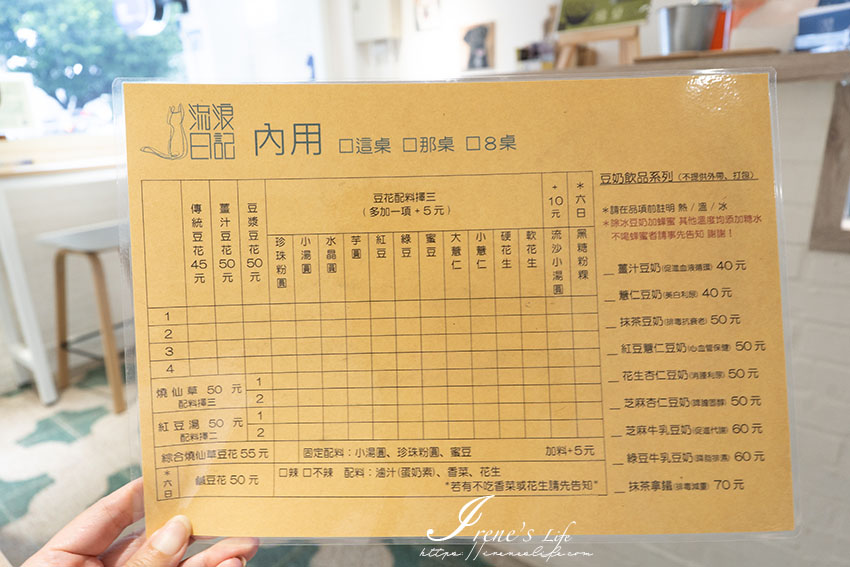 流浪日記 內用 □這桌 □那桌 □8桌
傳統豆花45元
薑汁豆花50元
豆漿豆花50元
豆花配料擇三
(多加一項+5元)
珍珠粉圓
小湯圓
水晶圓
芋圓
紅豆
綠豆
蜜豆
大薏仁
小薏仁
硬花生
軟花生
+10元
流沙小湯圓
*六日
黑糖粉粿
1
2
3
4
燒仙草 50 元
配料擇三
1
2
紅豆湯 50 元
配料擇二
1
2
綜合燒仙草豆花 55 元 固定配料:小湯圓、珍珠粉圓、蜜豆 加料+5元
*六日
鹹豆花 50 元
□辣 □不辣 配料:滷汁(蛋奶素)、香菜、花生
*若有不吃香菜或花生請先告知*
豆奶飲品系列(不提供外帶、打包)
*請在品項前註明 熱 / 溫 / 冰
*除冰豆奶加蜂蜜 其他溫度均添加糖水
不喝蜂蜜者請事先告知 謝謝!
_ 薑汁豆奶(促進血液循環) 40 元
_ 薏仁豆奶(美白利尿) 40 元
_ 抹茶豆奶(排毒抗衰老) 50 元
_ 紅豆薏仁豆奶(心血管保健) 50 元
_ 花生杏仁豆奶(消腫利尿) 50 元
_ 芝麻杏仁豆奶 50 元
_ 芝麻牛乳豆奶(促進代謝) 60 元
_ 綠豆牛乳豆奶 60 元
_ 抹茶拿鐵(排毒減壓) 70 元
Irene's Life
https://irenelife.com